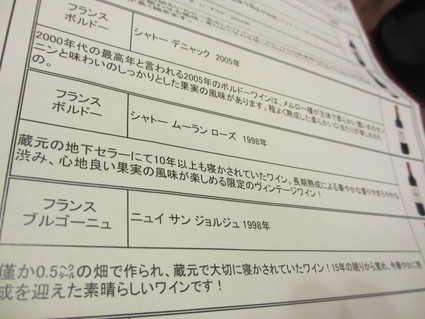 フランス
ボルドー
シャトー デニャック 2005年
2000年代の最高年と言われる2005年のボルドーワインは、メルロー種が主体で柔らかい濃いめのタ
ンニンと味わいのしっかりとした果実の風味があります。程よく熟成した柔らかい口当たりが楽しめるも
の。
フランス
ボルドー
シャトー ムーラン ローズ 1998年
蔵元の地下セラーにて10年以上も寝かされていたワイン。長期熟成による華やかな香りやまろやかな
渋み、心地良い果実の風味が楽しめる限定のヴィンテージワイン！
フランス
ブルゴーニュ
ニュイ サン ジョルジュ 1998年
僅か0.5ヘクタールの畑で作られ、蔵元で大切に寝かされていたワイン！15年の眠りから覚め、今華やかに熟
成を迎えた素晴らしいワインです！